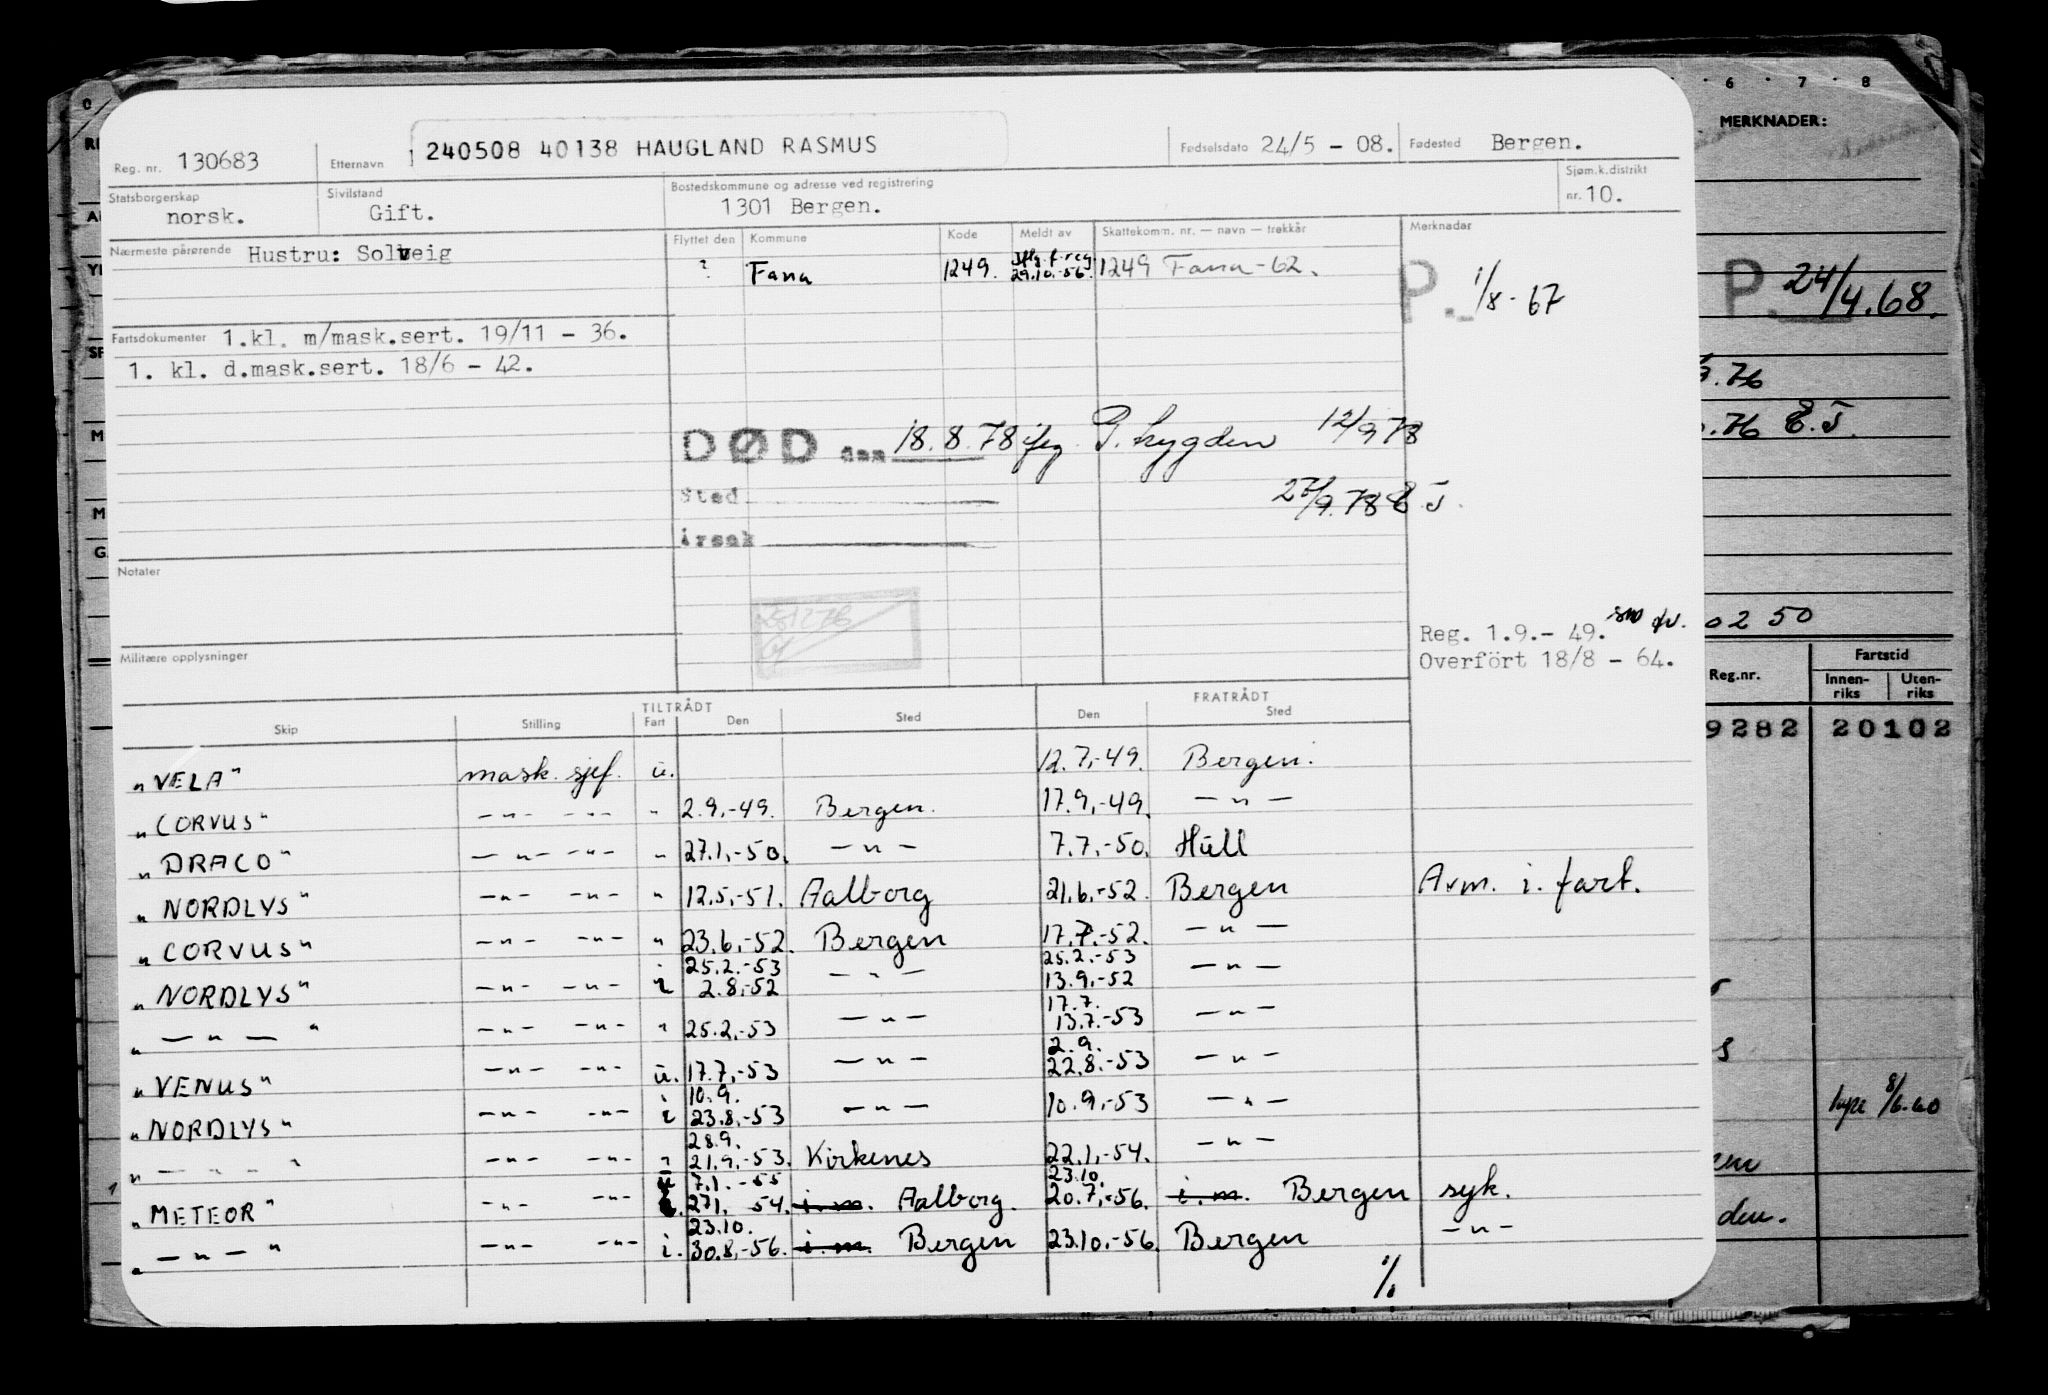 Reg. nr. 130683 Etternavn 240508 40138 HAUGLAND RASMUS Fødselsdato 24/5 - 08. Fødested Bergen.
Statsborgerskap norsk. Sivilstand Gift. Bostedskommune og adresse ved registrering 1301 Bergen. Sjøm.k.distrikt nr. 10.
Nærmeste pårørende Hustru: Solveig
Flyttet den Kommune Kode Meldt av Skattekomm. nr. — navn — trekkår Merknader
? Fana 1249. 29.10.-56. 1249 Fana-62.
P. 1/8 - 67
Fartsdokumenter 1.kl. m/mask.sert. 19/11 - 36.
1. kl. d.mask.sert. 18/6 - 42.
DØD den 18.8.78 12/9 78
Sted
27/9.78 E.J.
Årsak
Notater
Reg. 1.9.- 49.
Overfört 18/8 - 64.
Militære opplysninger
TILTRÅDT FRATRÅDT
Skip Stilling Fart Den Sted Den Sted
"VELA" mask. sjef. u. 12.7.-49. Bergen.
"CORVUS" -"- -"- " 2.9.-49. Bergen. 17.9.-49. -"-
"DRACO" -"- -"- " 27.1.-50. -"- 7.7.-50. Hull
"NORDLYS" -"- -"- " 12.5.-51. Aalborg 21.6.-52. Bergen Avm. i. fart.
"CORVUS" -"- -"- " 23.6.-52. Bergen 17.7.-52. -"-
25.2.-53 25.2.-53
"NORDLYS" -"- -"- i 2.8.-52 -"- 13.9.-52 -"-
17.7.
" -"- " -"- -"- " 25.2.-53 -"- 13.7.-53 -"-
2.9.
"VENUS" -"- -"- u. 17.7.-53 -"- 22.8.-53 -"-
10.9.
"NORDLYS" -"- -"- i 23.8.-53 -"- 10.9.-53 -"-
28.9.
" -"- " -"- -"- " 21.9.-53. Kirkenes 22.1.-54. -"-
7.1.-55 23.10.
"METEOR" -"- -"- 27.1. 54. i.m. Aalborg. 20.7.-56. i.m. Bergen syk.
23.10.
" -"- " -"- -"- i. 30.8.-56. i.m. Bergen 23.10.-56. Bergen -"-
6 7 8
MERKNADER:
P. 24/4.68.
.76
.76 E.J.
02 50
Reg.nr. Fartstid
Innen-riks Uten-riks
9282 20102
8/6.60
den.